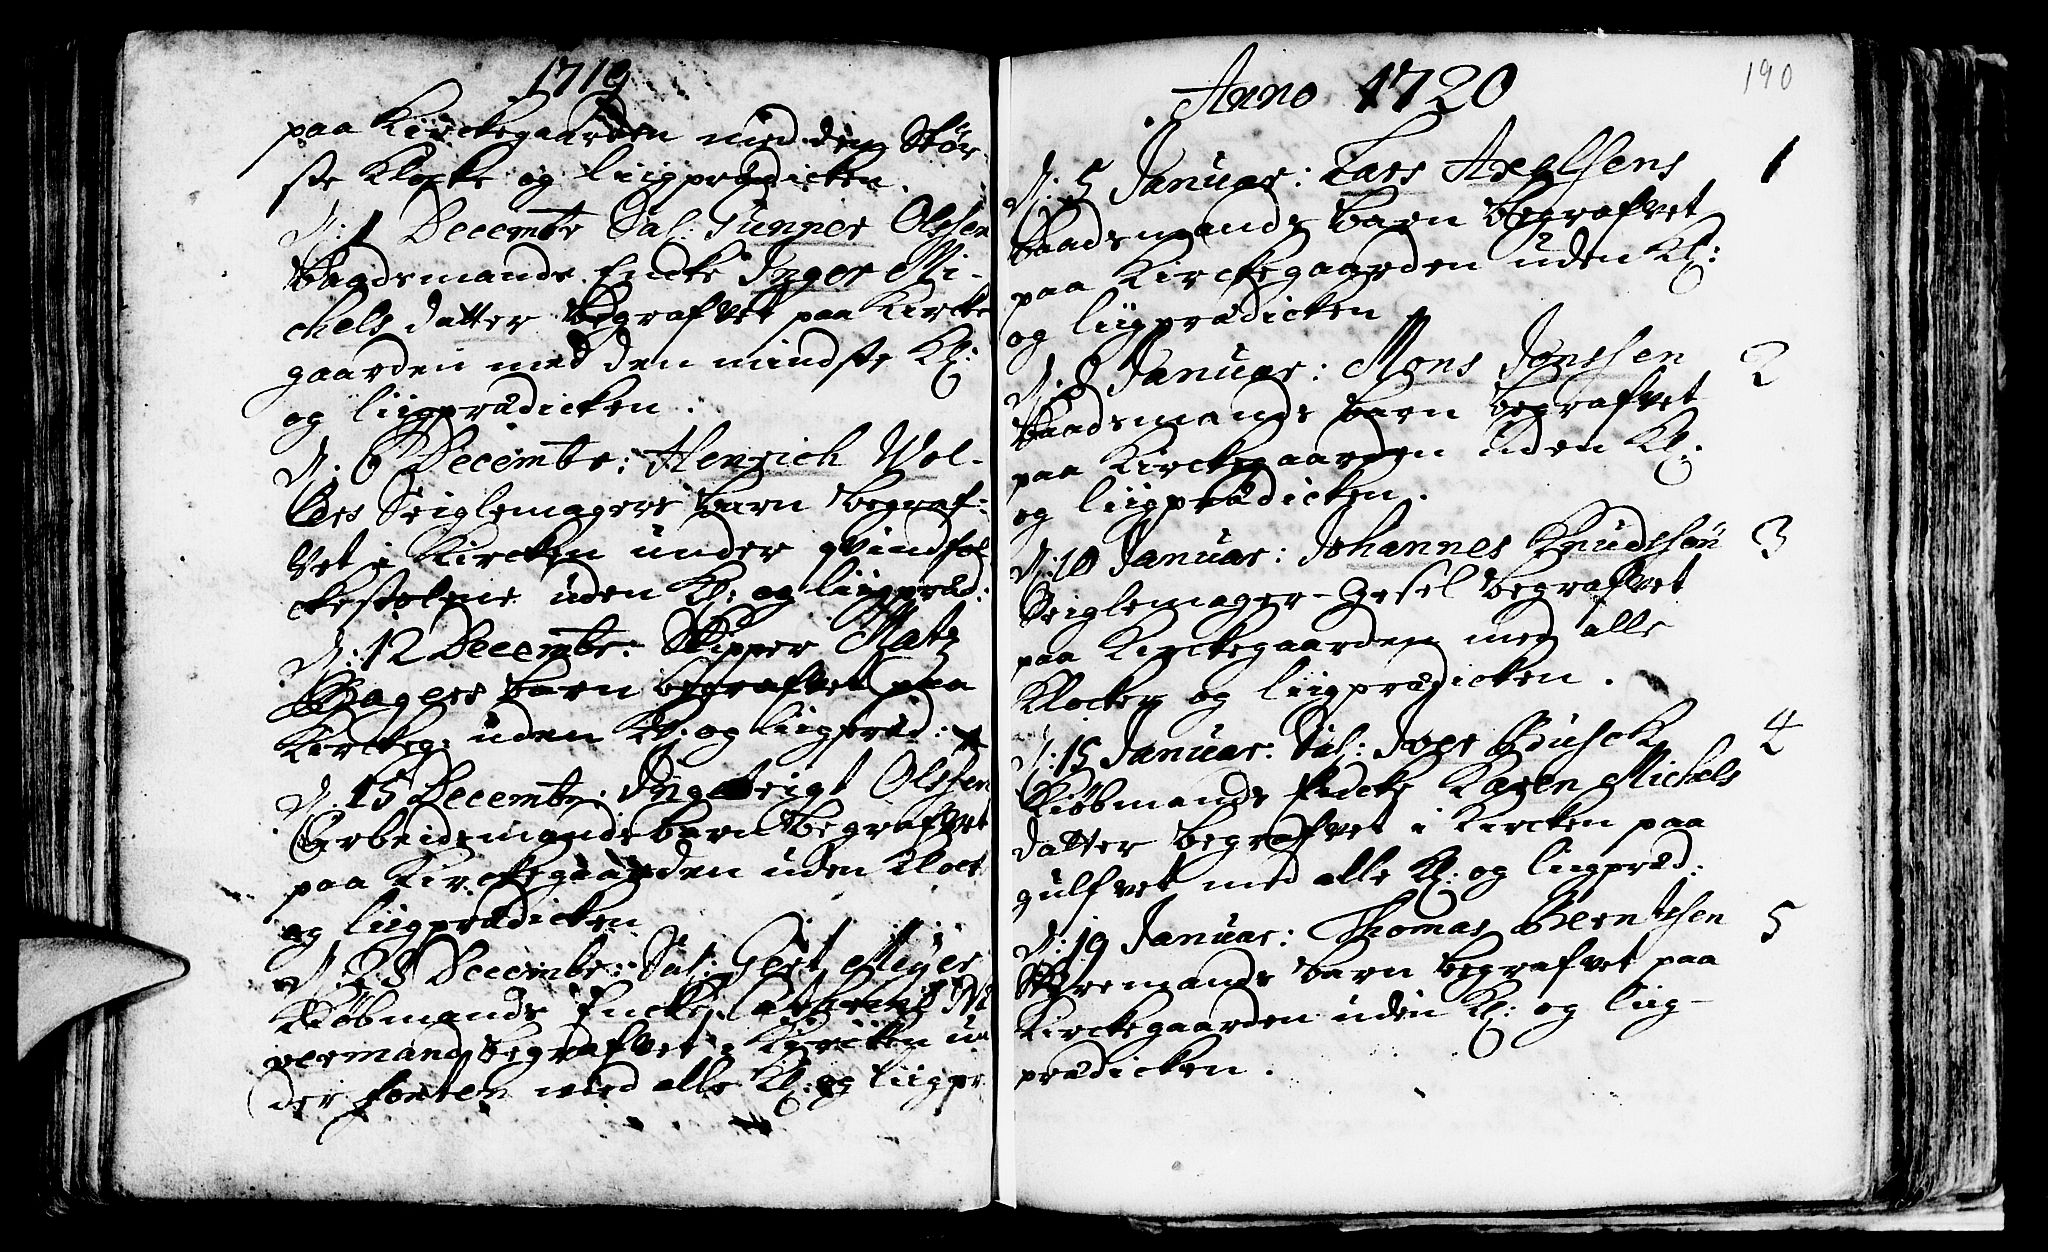 1719
paa Kirckegaarden med den Stør-
ste Klocke og liigprædicken.
D: 1 Decembr Sal: Gunner Olssen
Baadsmands Encke Inger Mi-
chels datter begrafvet paa Kircke
gaarden med den mindste Kl:
og liigprædicken.
D. 6 Decembr: Henrich Wol-
lers Seiglemagers barn begraf-
vet i Kircken under qvindfol
ckestolene uden Kl: og liigpræd:
D: 12 Decembr. Skipper Matz
Bagers barn begrafvet paa
Kirckeg: uden Kl: og liigpræd:
D. 15 Decembr. Ingebrigt Olssen
Arbeidsmands barn begrafvet
paa Kirckegaarden uden Klock
og liigprædicken
D. 28 Decembr: Sal: Gert Meyer
Kiøbmands Encke Cathrina
vermand begrafvet i Kircken un
der fonten med alle Kl: og liigpr.
190
Anno 1720
D: 5 Januar: Lars Axelsens 1
Baadsmands barn begrafvet
paa Kirckegaarden uden Kl:
og liigprædicken
D: 8 Januar: Mons Jonssen 2
Baadsmands barn begrafvet
paa Kirckegaarden uden Kl:
og liigprædicken.
D: 10 Januar: Johannes Knudssøn 3
Seiglemager-Gesel begrafvet
paa Kirckegaarden med alle
Klocker og liigprædicken.
D: 15 Januar: Sal: Iver Busck 4
Kiøbmands Encke Karen Michels
datter begrafvet i Kircken paa
gulfvet med alle Kl: og liigpræd:
D: 19 Januar: Thomas Berntssen 5
Styremands barn begrafvet paa
Kirckegaarden uden Kl: og liig-
prædicken.